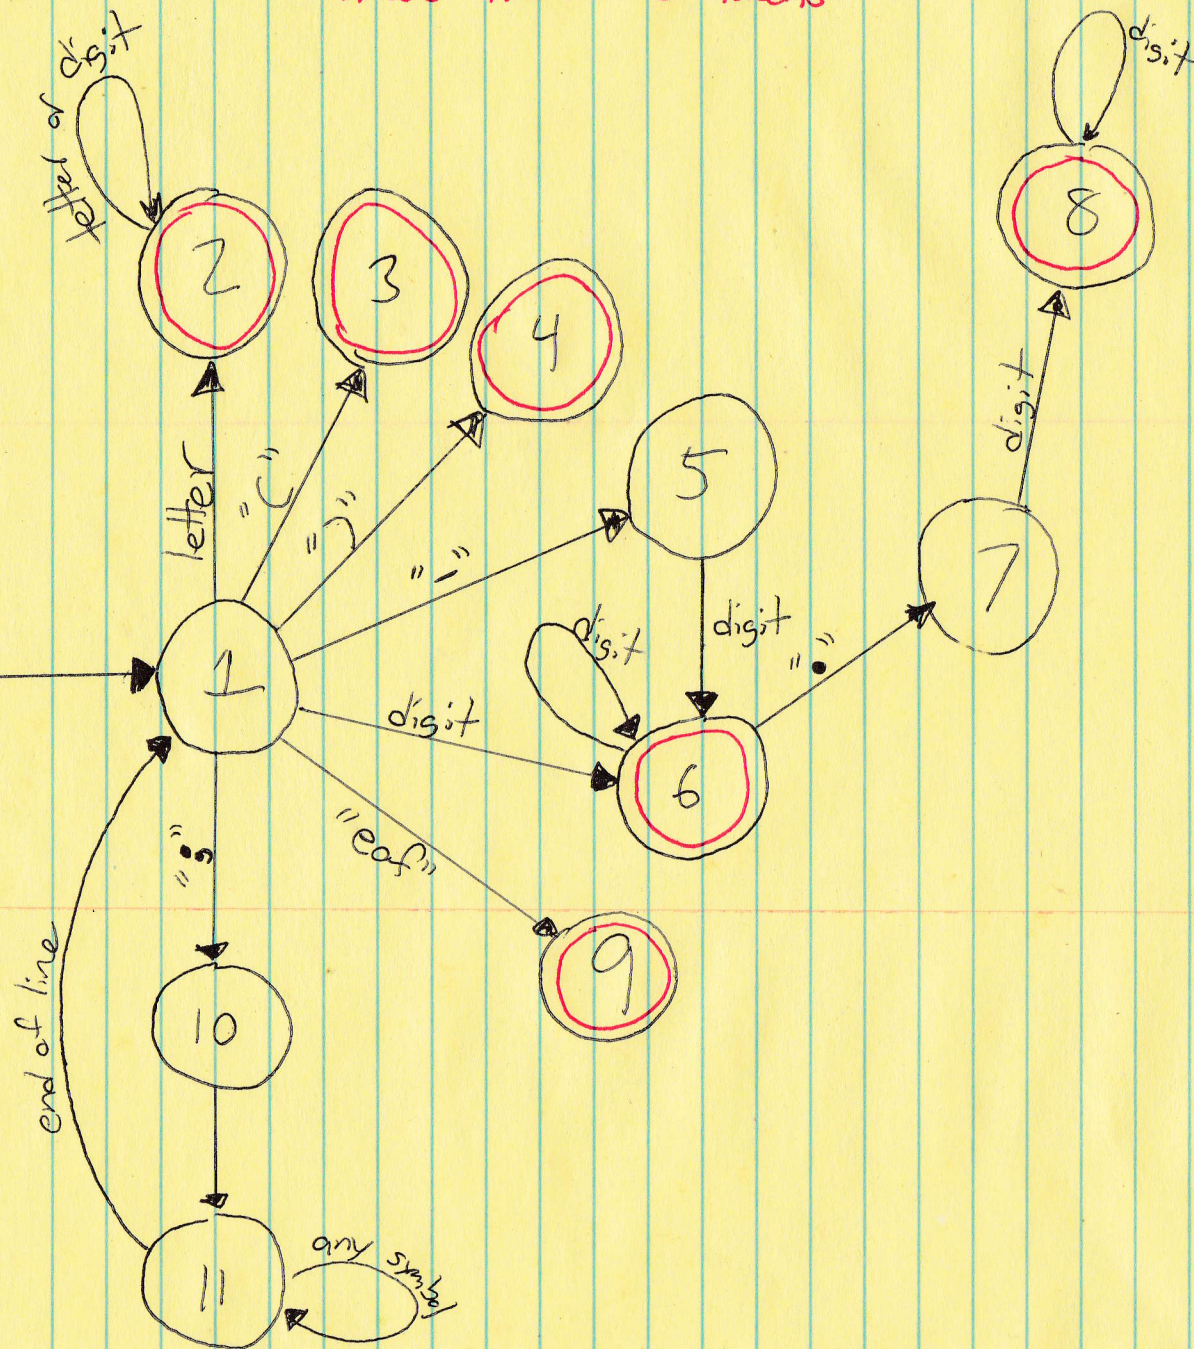 letter or digit
digit
2
3
4
8
5
7
letter
"("
")"
"-"
digit
digit
digit
"."
1
digit
6
";"
"eof"
9
end of line
10
11
any symbol